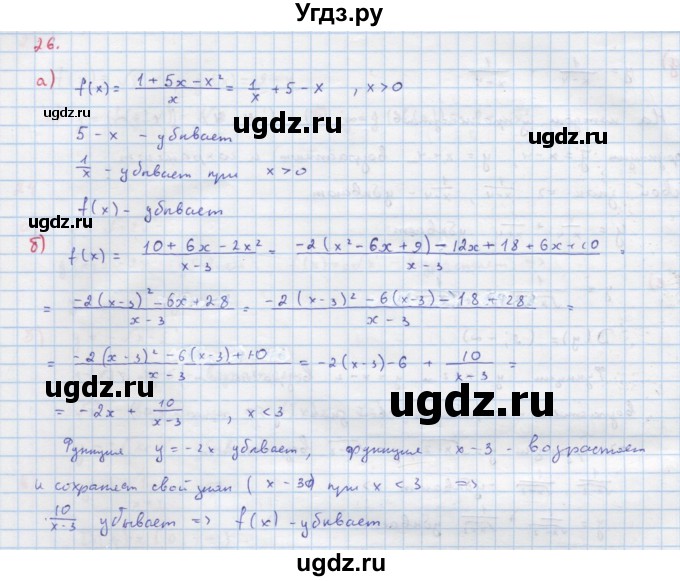 Угдз.ру
26.
а) f(x) = (1 + 5x − x²)/x = 1/x + 5 − x , x > 0
ugdz.ru ugdz.ru
5 − x − убывает
1/x − убывает при x > 0
ugdz.ru
f(x) − убывает
б) f(x) = (10 + 6x − 2x²)/(x − 3) = (−2(x² − 6x + 9) − 12x + 18 + 6x + 10)/(x − 3) =
ugdz.ru
= (−2(x − 3)² − 6x + 28)/(x − 3) = (−2(x − 3)² − 6(x − 3) − 18 + 28)/(x − 3) =
= (−2(x − 3)² − 6(x − 3) + 10)/(x − 3) = −2(x − 3) − 6 + 10/(x − 3) =
ugdz.ru ugdz.ru
= −2x + 10/(x − 3) , x < 3
Функция y = −2x убывает, функция x − 3 − возрастает
и сохраняет свой знак (x − 3) при x < 3 =>
ugdz.ru
10/(x − 3) убывает => f(x) − убывает.
ugdz.ru